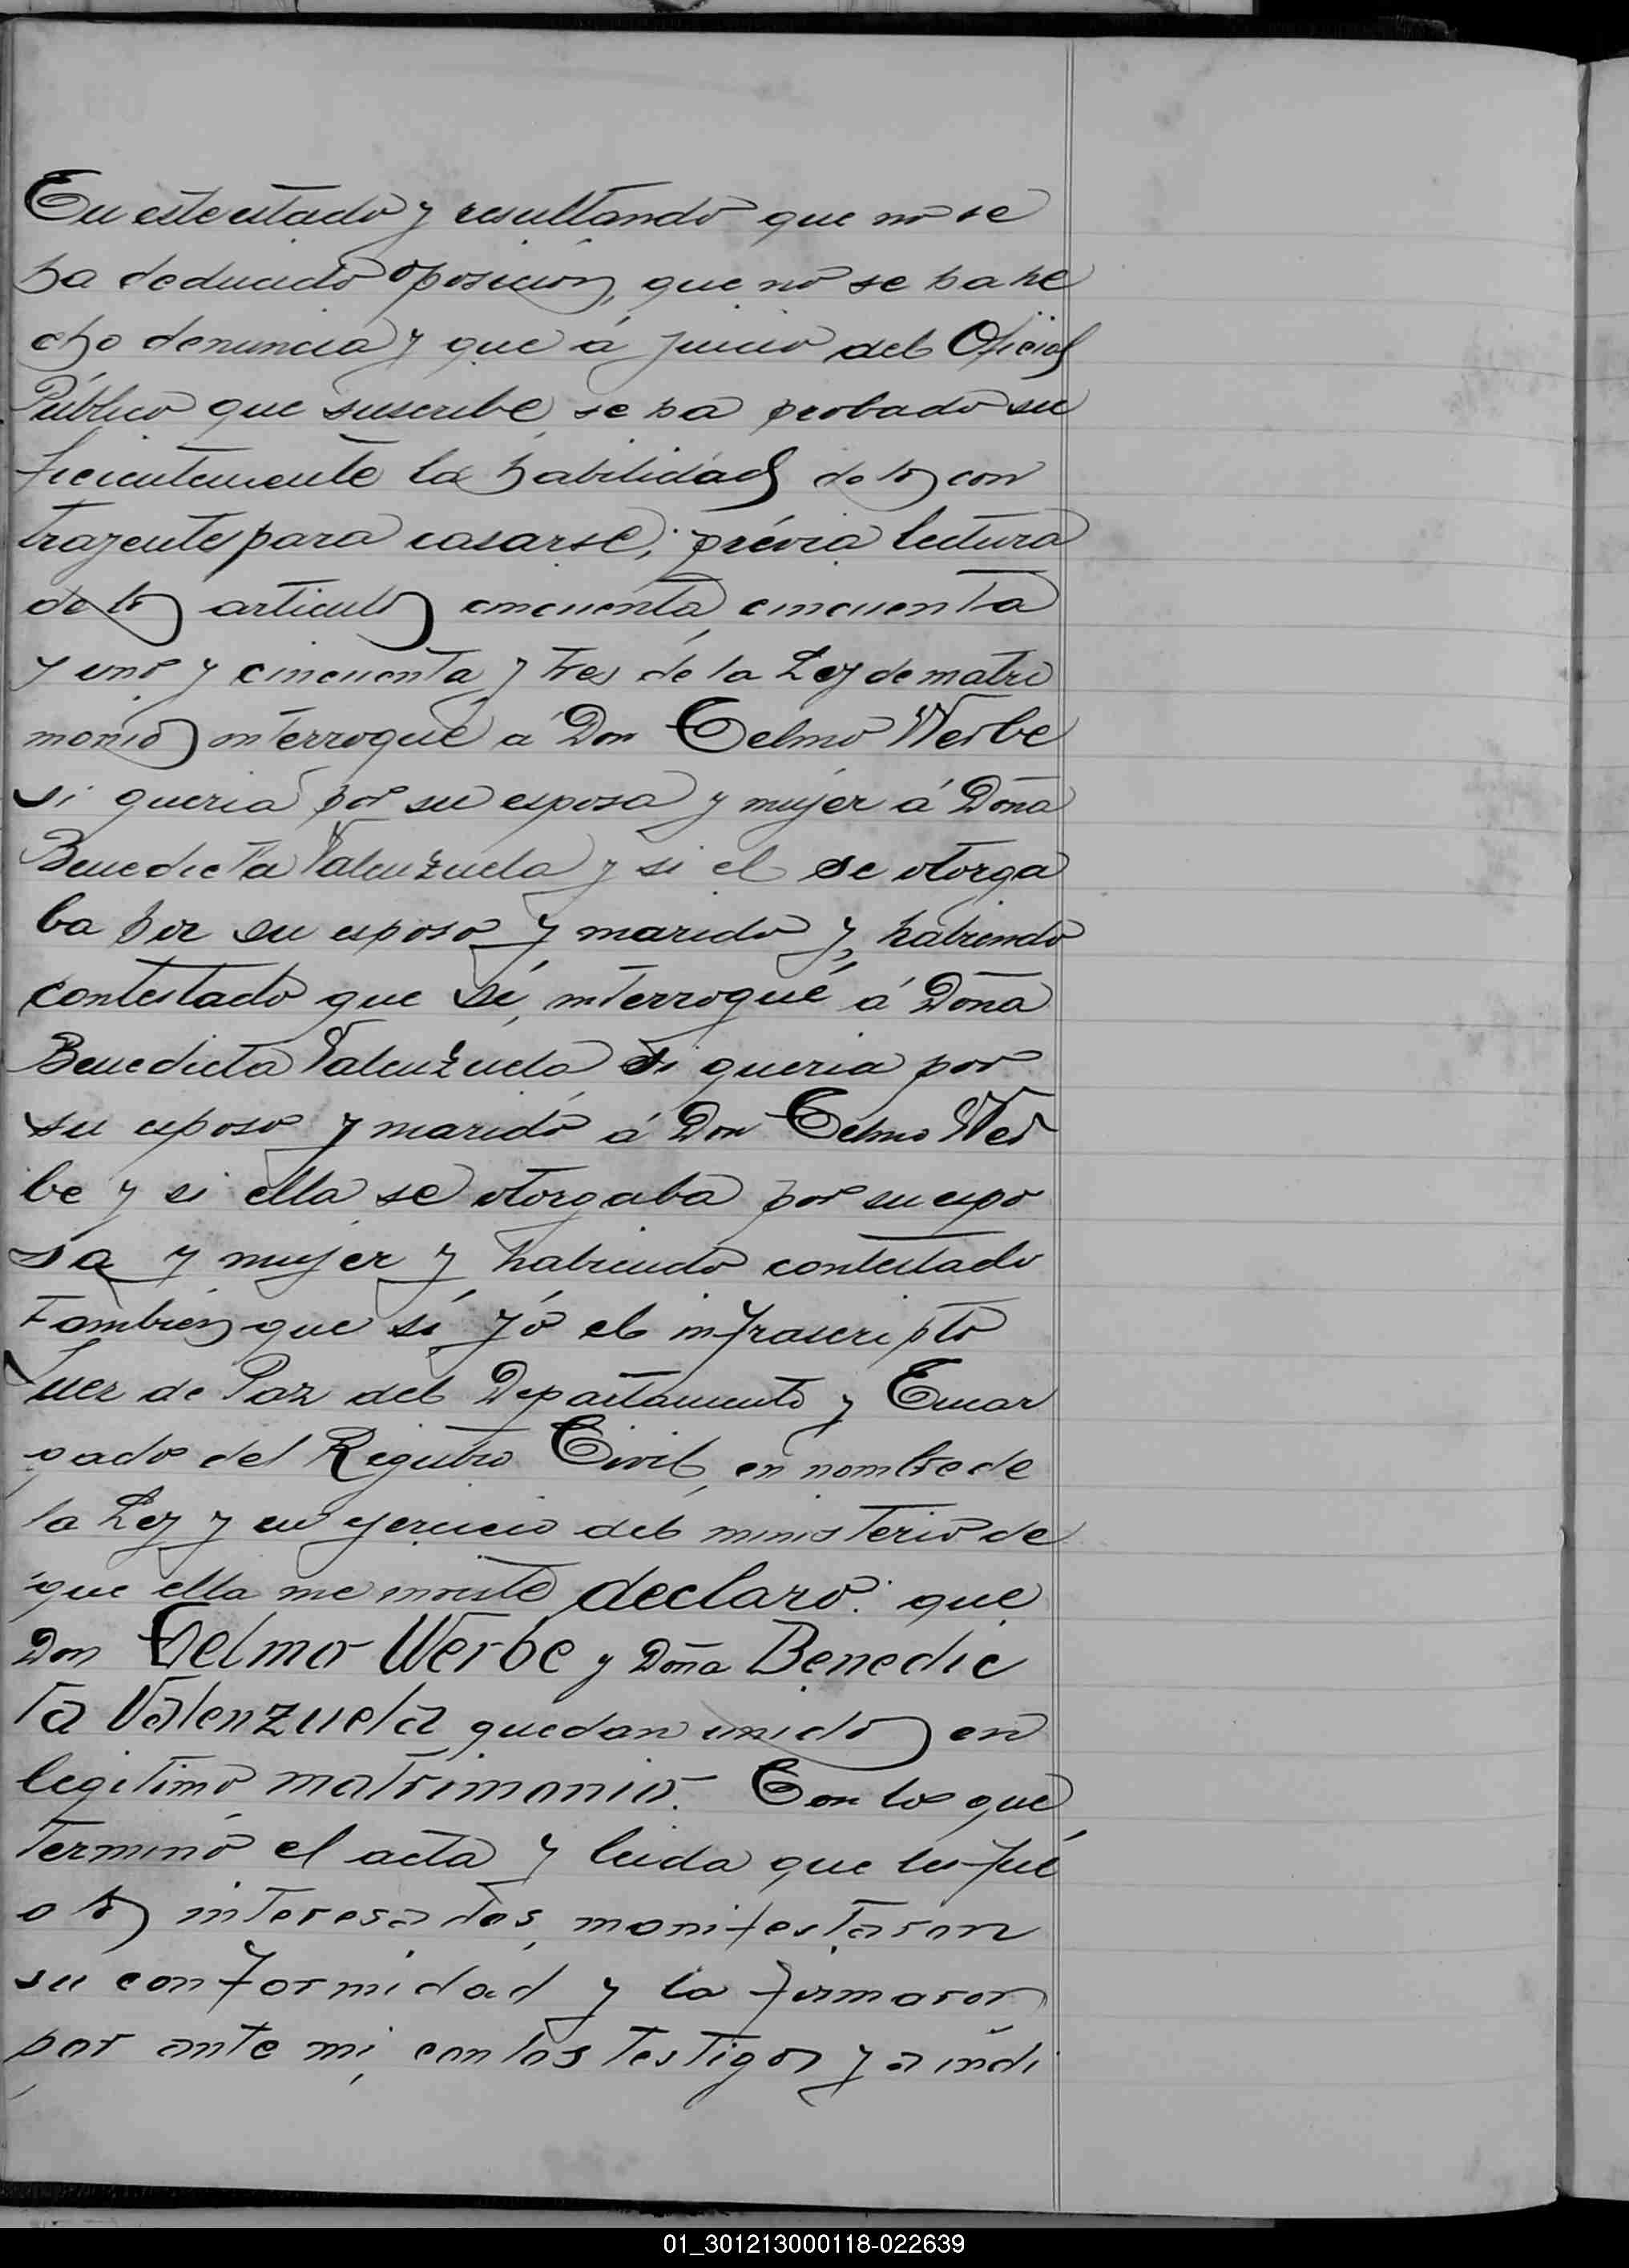 En este estado y resultando que no se
ha deducido oposicion, que no se ha he
cho denuncia y que á juicio del Oficial
Público que suscribe, se ha probado su
ficientemente la habilidad de los con
trayentes para casarse; prévia lectura
de los articulos cincuenta, cincuenta
y uno y cincuenta y tres de la Ley de matri
monio interrogué á Don Telmo Werbe
si queria por su esposa y mujer á Doña
Benedicta Valenzuela y si el se otorga
ba por su esposo y marido y, habiendo
contestado que sí, interrogué á Doña
Benedicta Valenzuela si queria por
su esposo y marido á Don Telmo Wer
be y si ella se otorgaba por su espo
sa y mujer y habiendo contestado
tambien que sí yó el infrascripto
Juez de Paz del Departamento y Encar
gado del Registro Civil, en nombre de
la Ley y en ejercicio del ministerio de
que ella me inviste declaro: que
Don Telmo Werbe y Doña Benedic
ta Valenzuela quedan unidos en
legitimo matrimonio. Con lo que
terminó el acta y leida que les fué
a los interesados, manifestaron
su conformidad y la firmaron
por ante mi, con los testigos ya indi
01_301213000118-022639